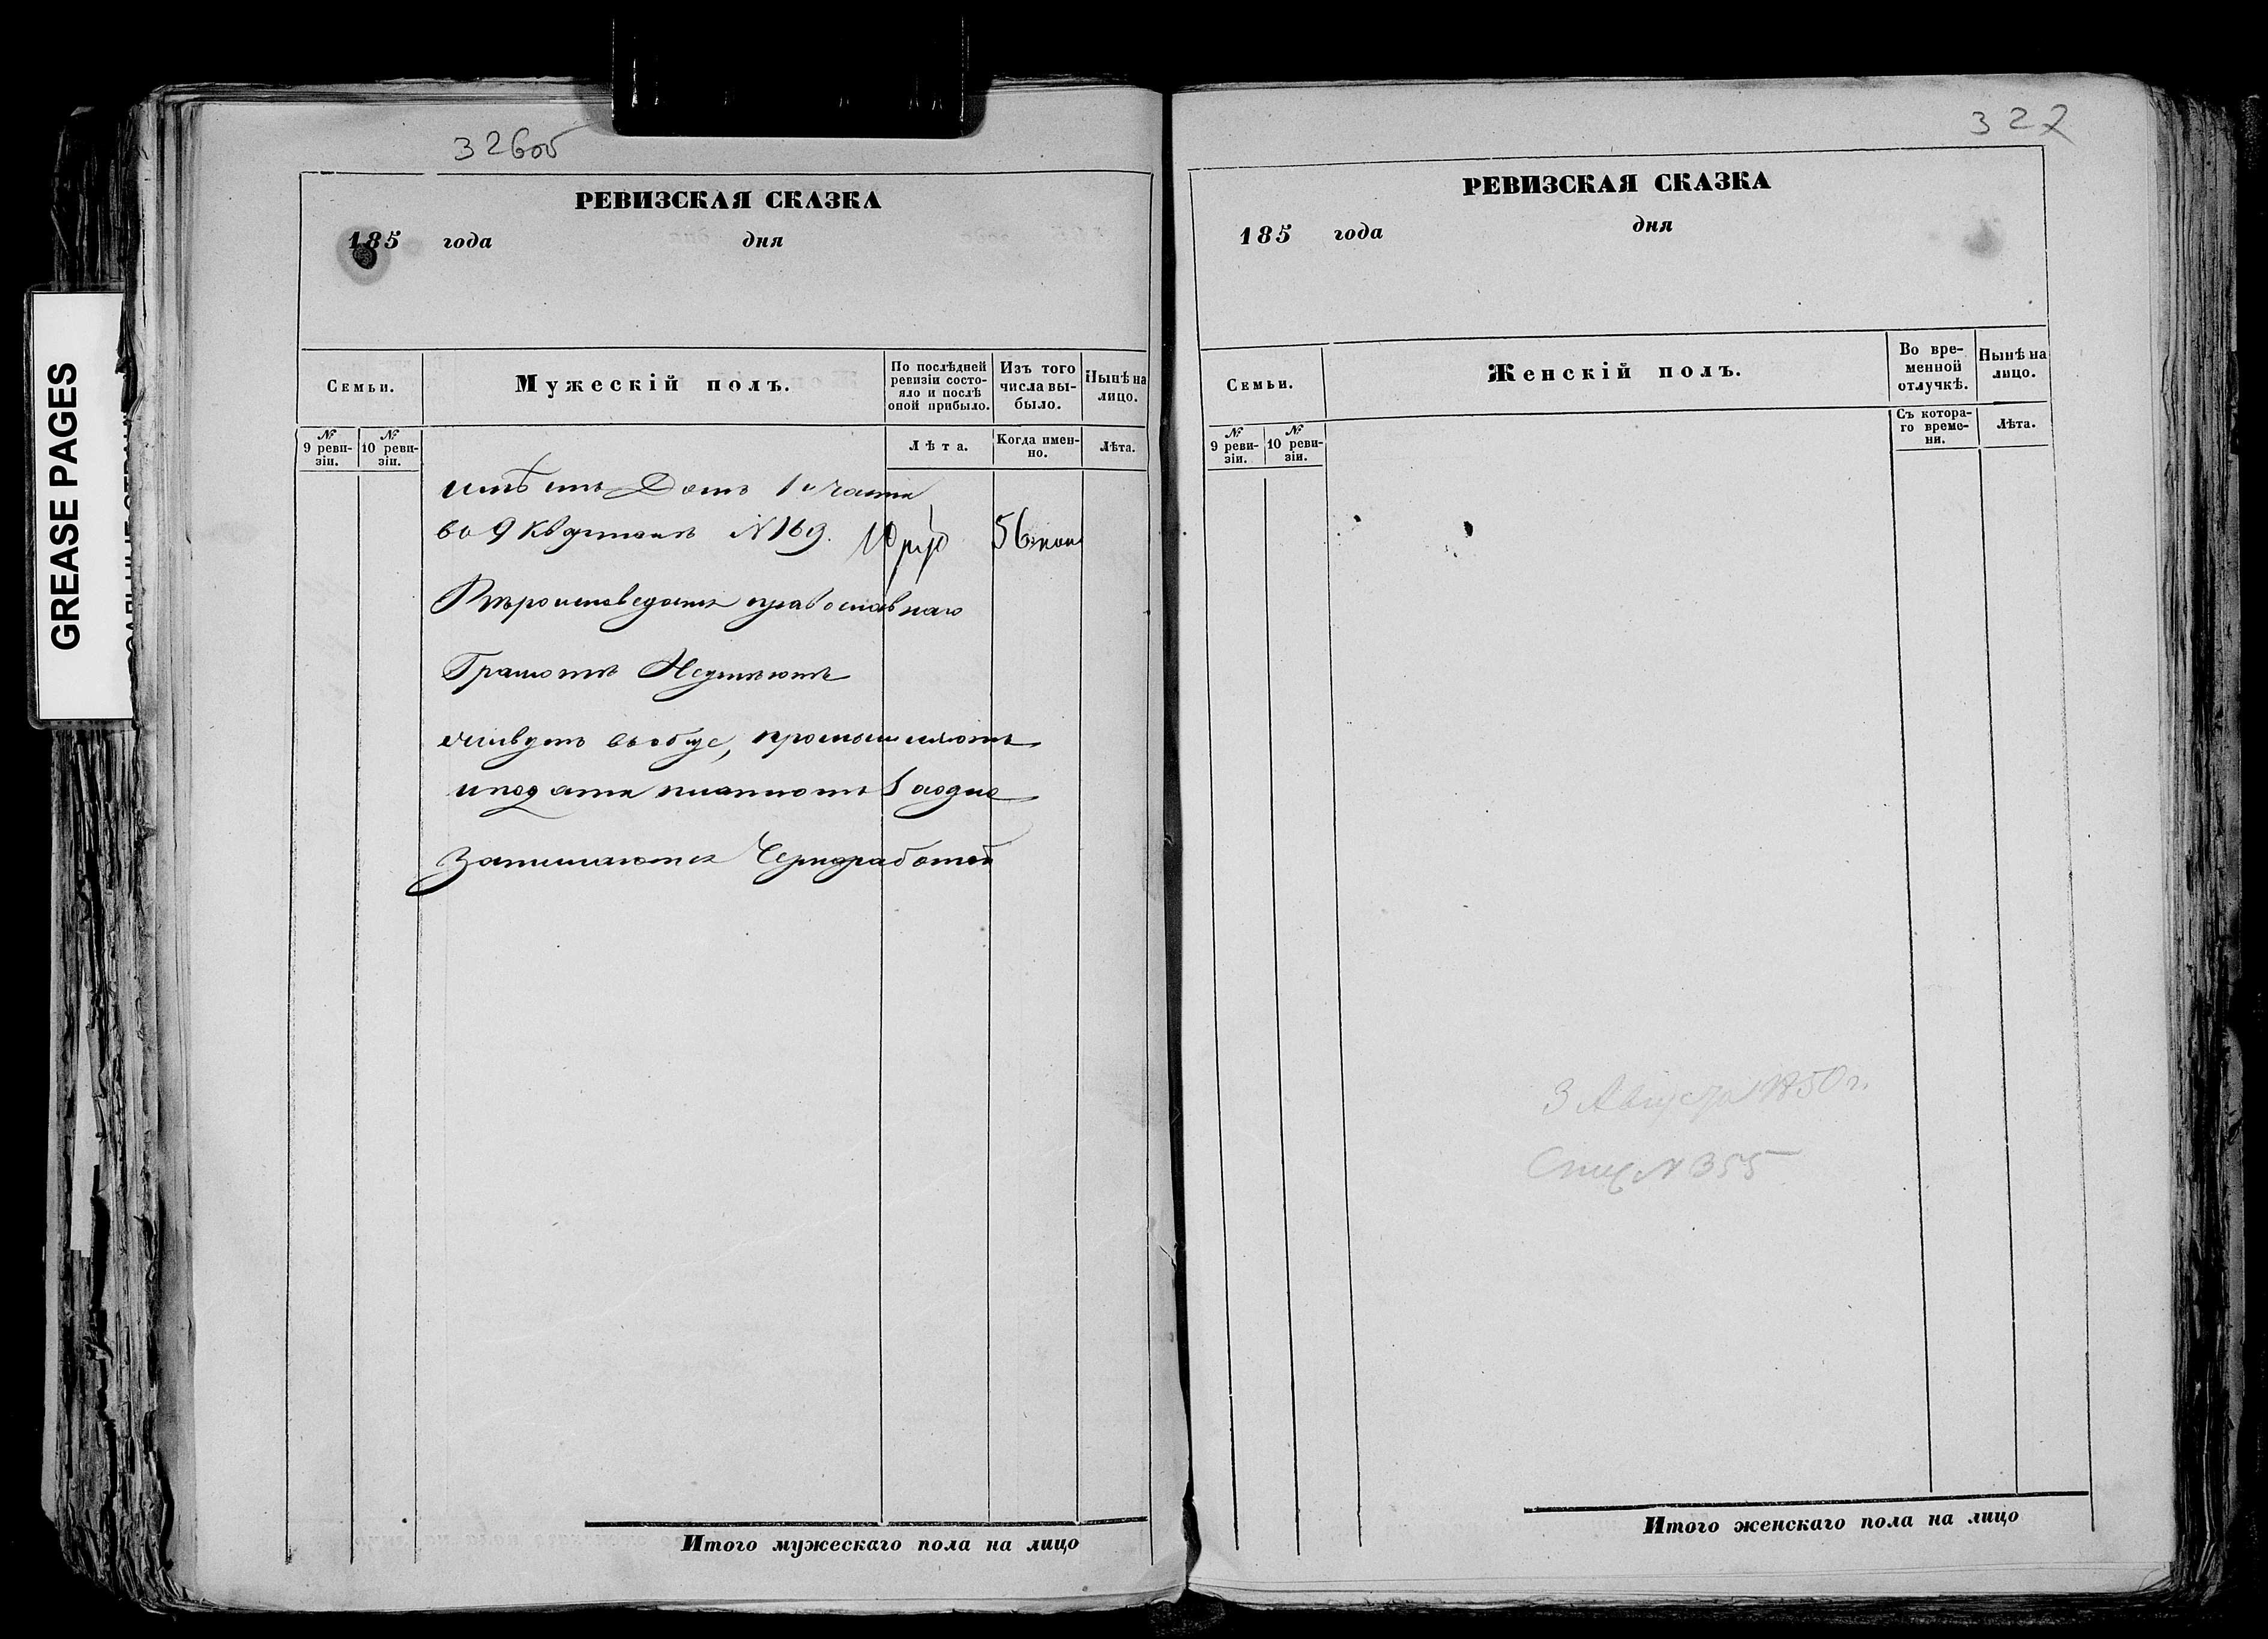 326об
РЕВИЗСКАЯ СКАЗКА
185 года дня
Семьи.
Мужескій полъ.
По послѣдней ревизіи состо-
яло и послѣ
оной прибыло.
Изъ того
числа вы-
было.
Нынѣ на
лицо.
№
9 реви-
зіи.
№
10 реви-
зіи.
Лѣта.
Когда имен-
но.
Лѣта.
имѣетъ Домъ 1й части
во 9 кварталѣ N 169. 10 руб 56 коп
Вѣроисповеданія православнаго
Грамотѣ Неумѣютъ
живутъ вообще, промышляютъ
и подати платятъ Заодно
Занимаются Чернорабо​той
Итого мужескаго пола на лицо
GREASE PAGES
322
РЕВИЗСКАЯ СКАЗКА
185 года дня
Семьи.
Женскій полъ.
Во вре-
менной
отлучкѣ.
Нынѣ на
лицо.
№
9 реви-
зіи.
№
10 реви-
зіи.
Съ котора-
го време-
ни.
Лѣта.
3 Августа 1850 г.
N 355
Итого женскаго пола на лицо